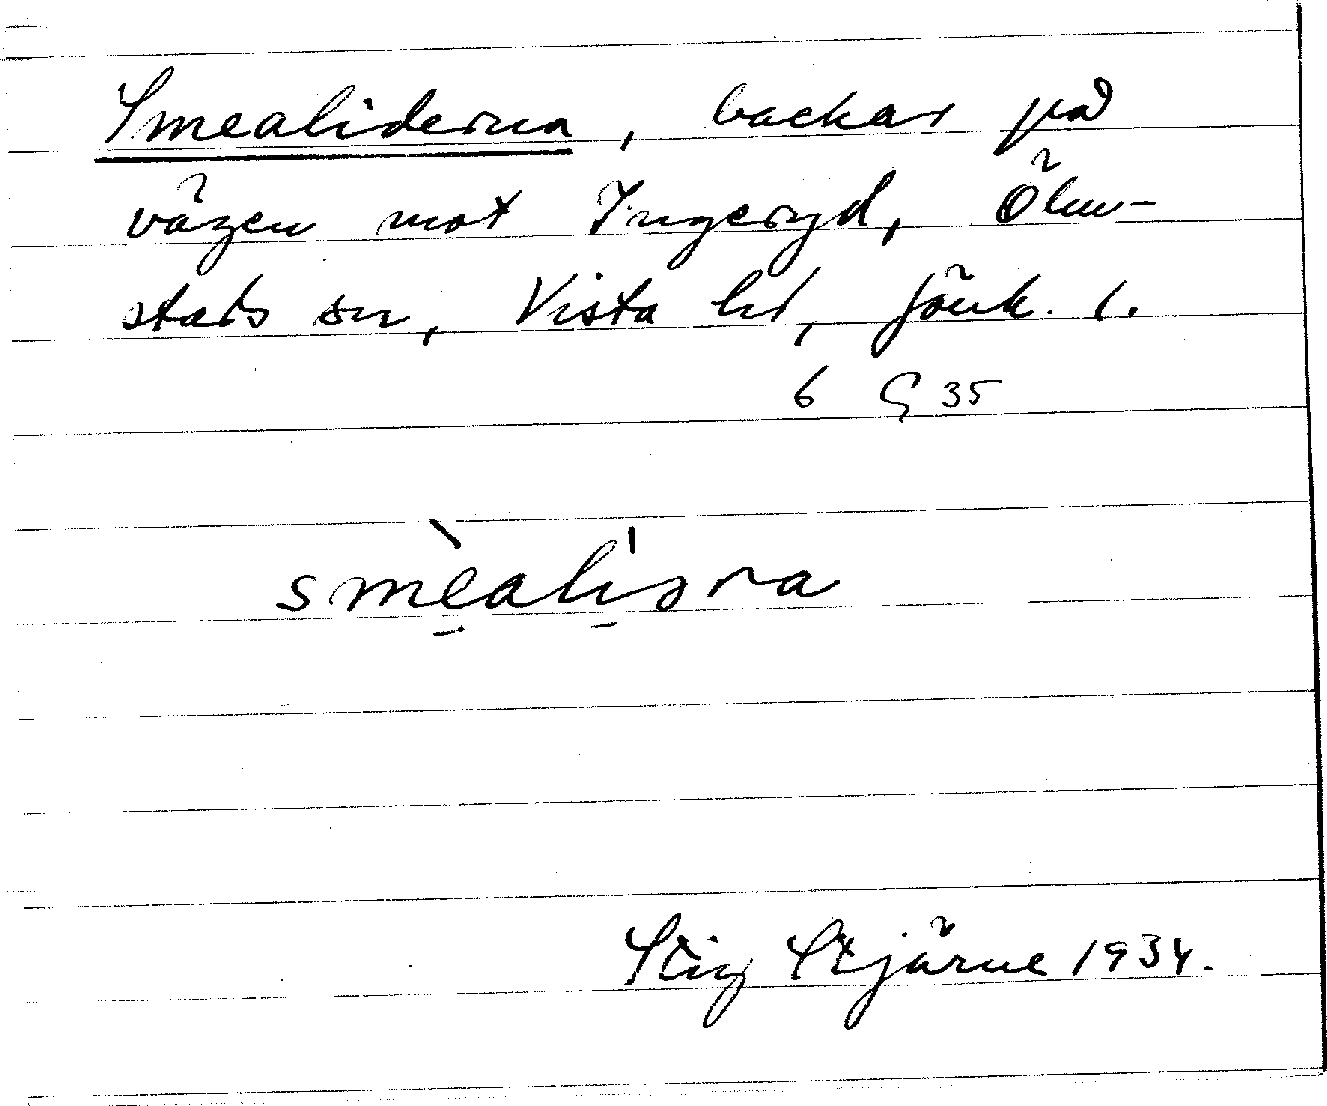 Smealiderna, backar på
vägen mot Ingeryd, Ölm-
stads sn, Vista hd, Jönk. l.
6 G 35
smèalịəra
Stig Stjärne 1934.